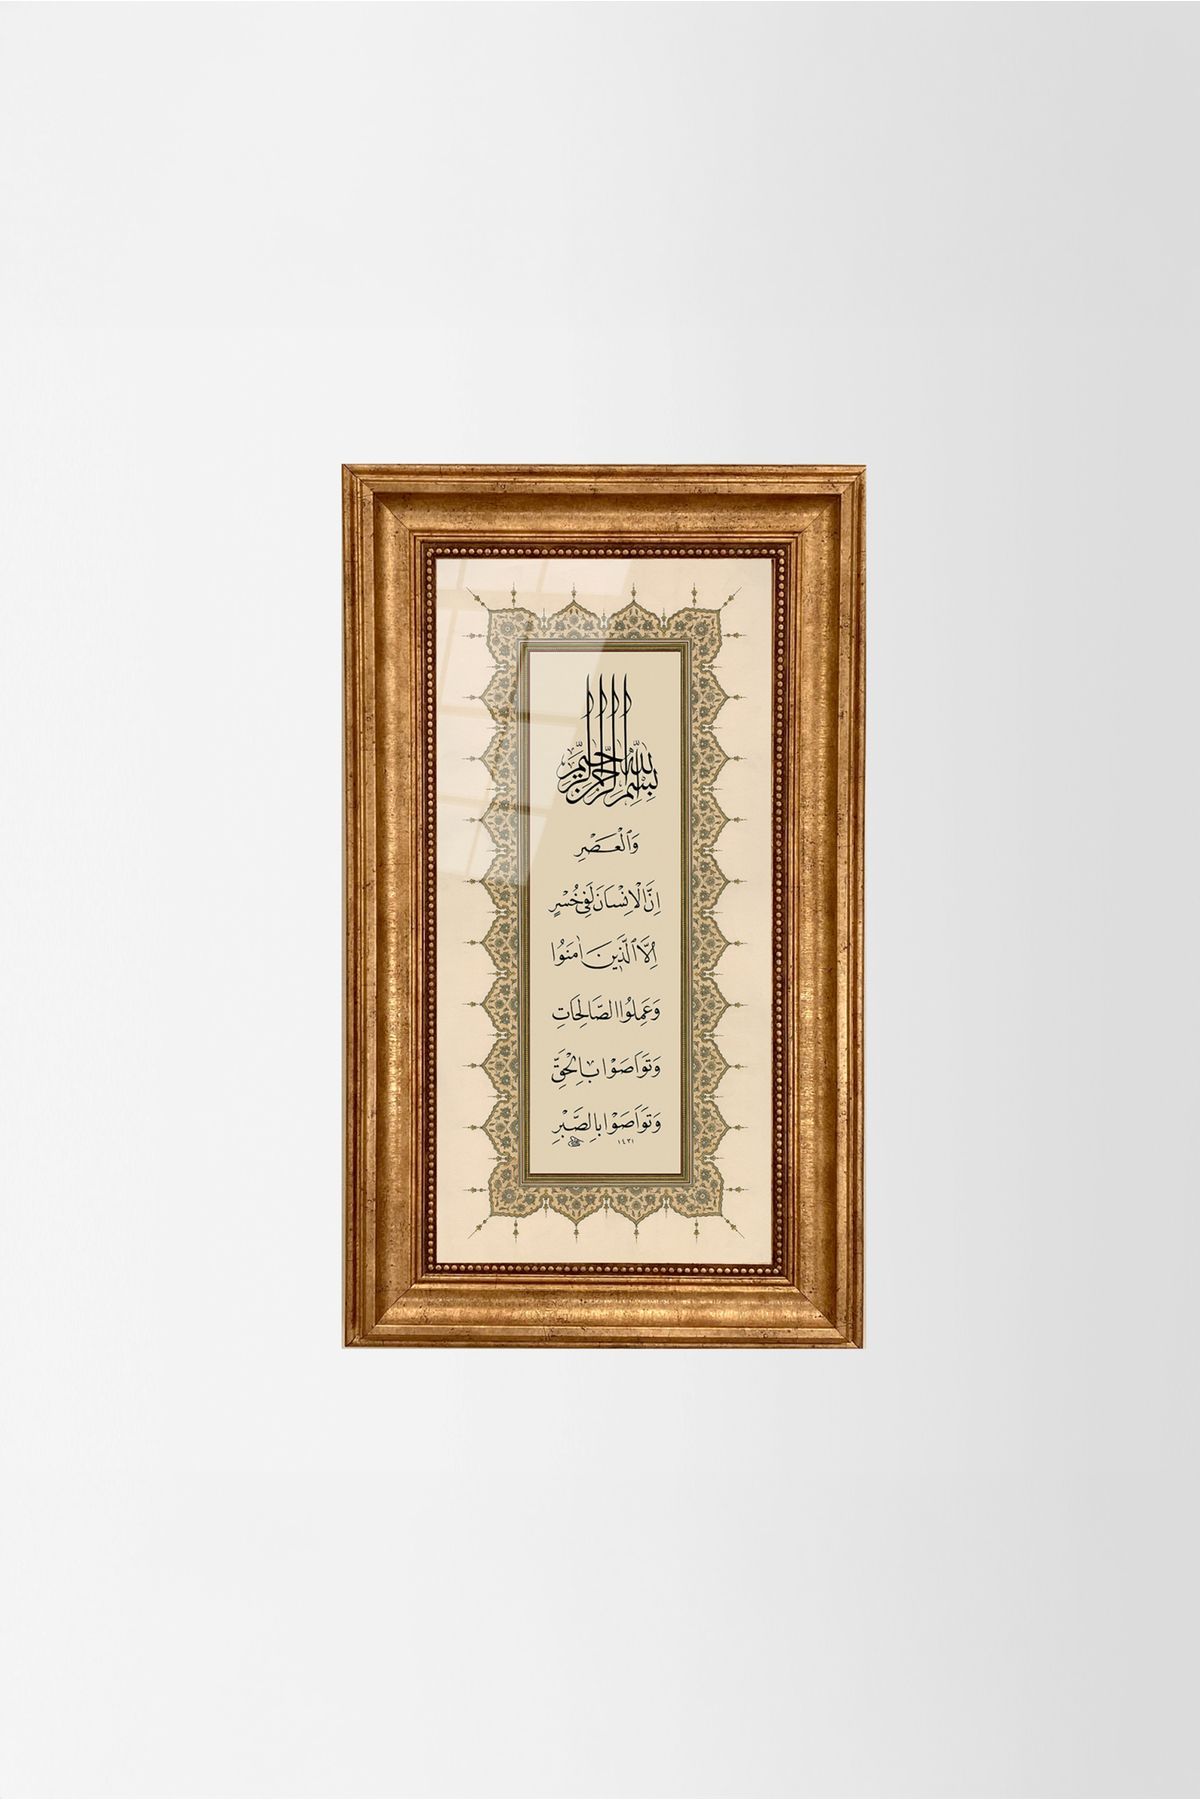 بِسْمِ اللّٰهِ الرَّحْمٰنِ الرَّحِيمِ
وَٱلْعَصْرِ
اِنَّ الْاِنْسَانَ لَفِى خُسْرٍ
اِلَّا ٱلَّذِينَ اٰمَنُوا
وَعَمِلُوا الصَّالِحَاتِ
وَتَوَاصَوْا بِالْحَقِّ
وَتَوَاصَوْا بِالصَّبْرِ
١٤٣١